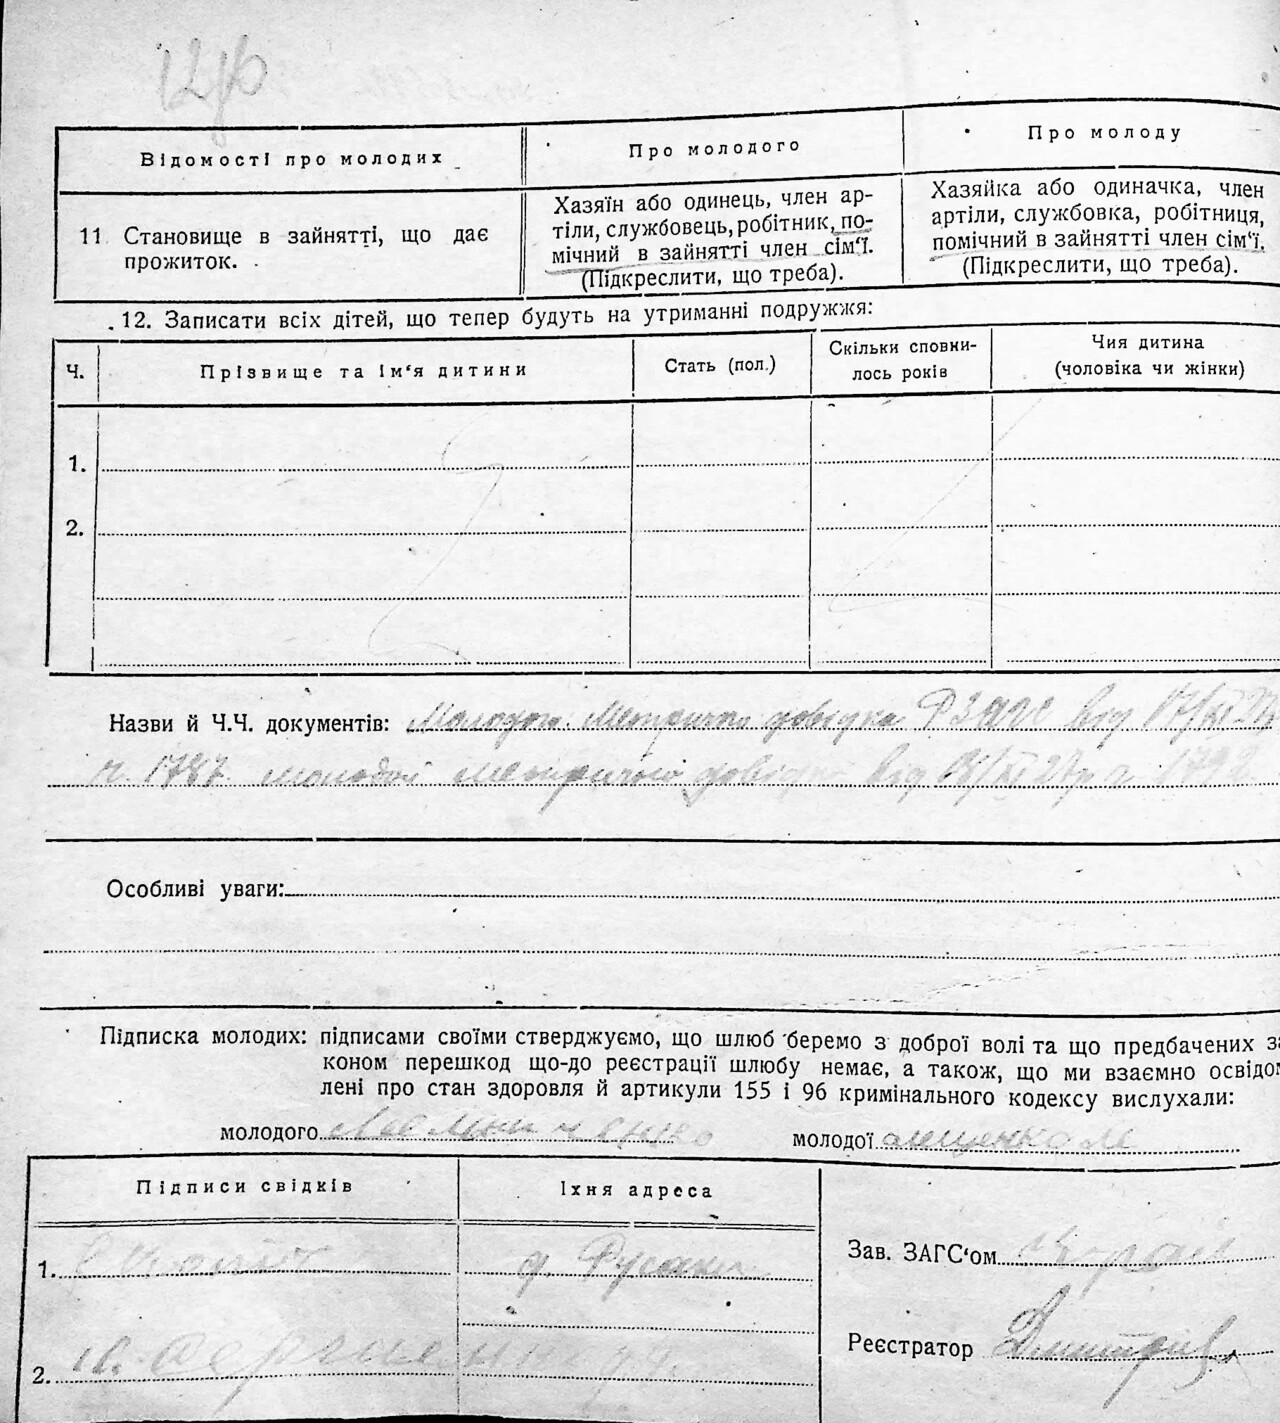 Відомості про молодих
Про молодого
Про молоду
11 Становище в зайнятті, що дає
прожиток.
Хазяїн або одинець, член ар-
тіли, службовець, робітник, по-
мічний в зайнятті член сім‘ї.
(Підкреслити, що треба).
Хазяйка або одиначка, член
артіли, службовка, робітниця,
помічний в зайнятті член сім‘ї.
(Підкреслити, що треба).
12. Записати всіх дітей, що тепер будуть на утриманні подружжя:
Ч.
Прізвище та ім‘я дитини
Стать (пол.)
Скільки сповни-
лось років
Чия дитина
(чоловіка чи жінки)
1.
2.
Назви й Ч.Ч. документів: Молодого Метрична довідка РЗАГС від 17/XI 27р
ч. 1787 молодої метрична довідка від /XI 27р ч 1792
Особливі уваги:
Підписка молодих: підписами своїми стверджуємо, що шлюб беремо з доброї волі та що предбачених за
коном перешкод що-до реєстрації шлюбу немає, а також, що ми взаємно освідом
лені про стан здоровля й артикули 155 і 96 кримінального кодексу вислухали:
молодого
молодої
Підписи свідків
Їхня адреса
1. д. Русаки
2.
Зав. ЗАГС‘ом
Реєстратор